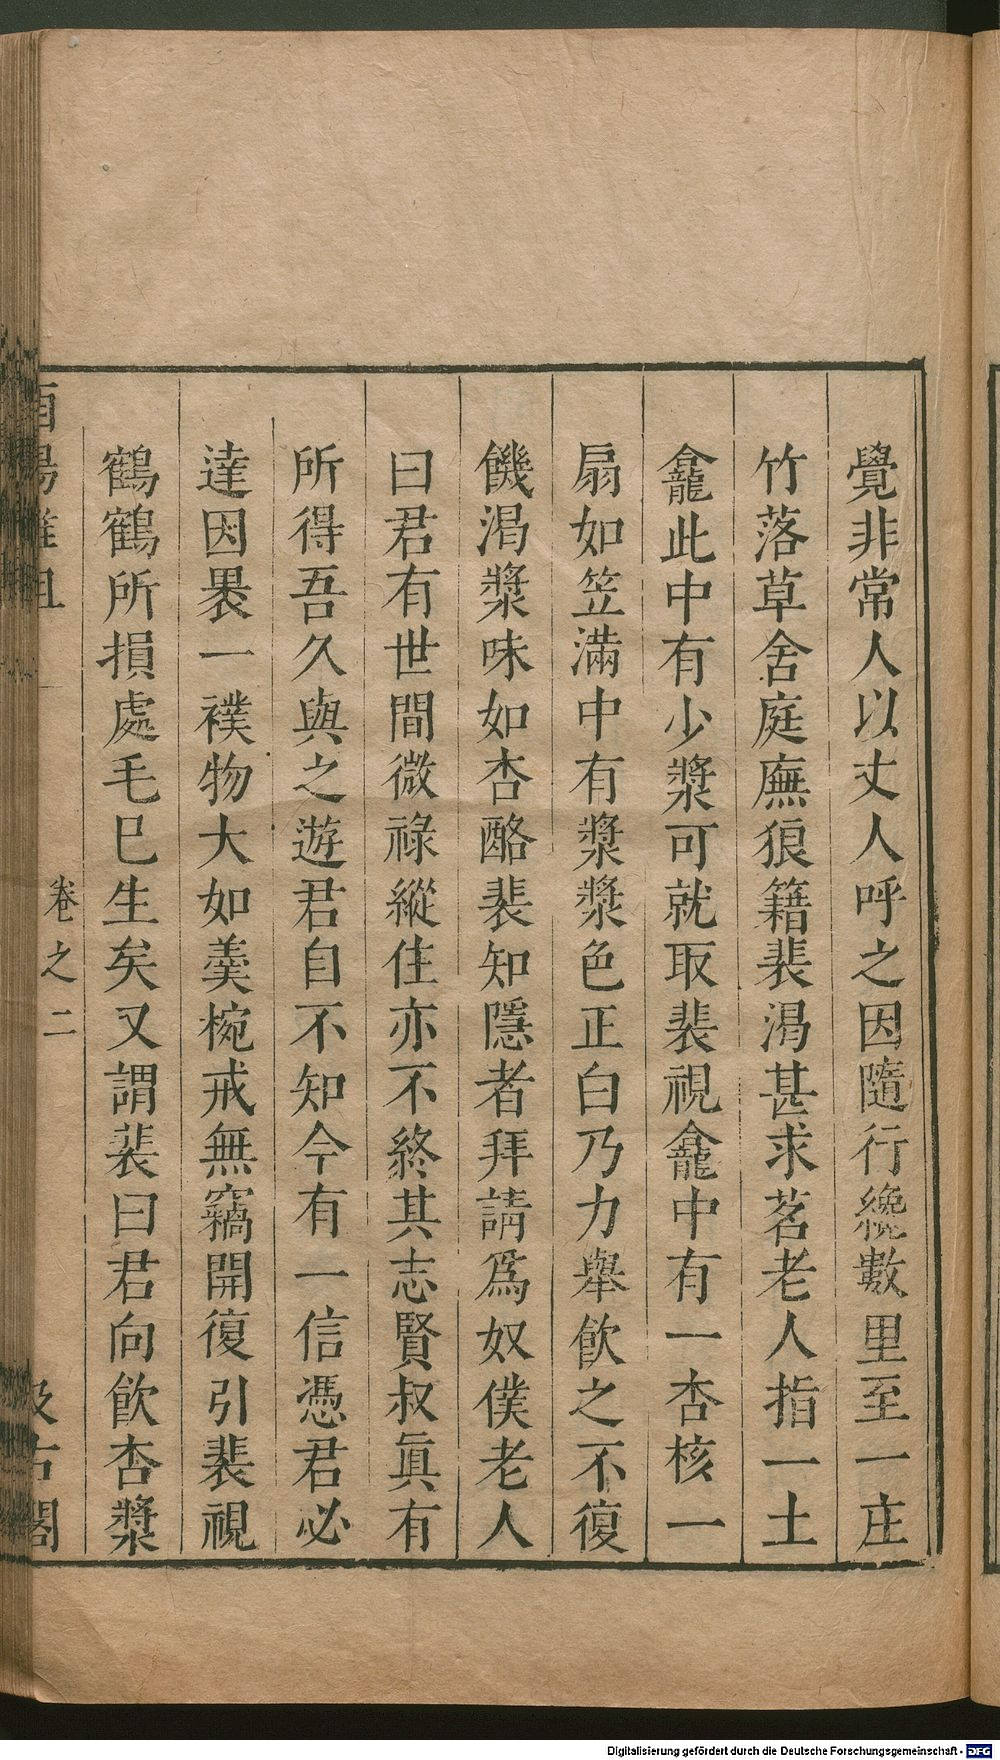 覺非常人以丈人呼之因隨行纔數里至一庄
竹落草舍庭廡狼籍裴渴甚求茗老人指一土
龕此中有少漿可就取裴視龕中有一杏核一
扇如笠滿中有漿漿色正白乃力舉飲之不復
饑渴漿味如杏酪裴知隱者拜請爲奴僕老人
曰君有世間微祿縱住亦不終其志賢叔眞有
所得吾久與之遊君自不知今有一信憑君必
達因褁一襆物大如羹椀戒無竊開復引裴視
鶴鶴所損處毛巳生矣又謂裴曰君向飲杏漿
酉陽雜俎 卷之二 汲古閣
Digitalisierung gefördert durch die Deutsche Forschungsgemeinschaft - DFG